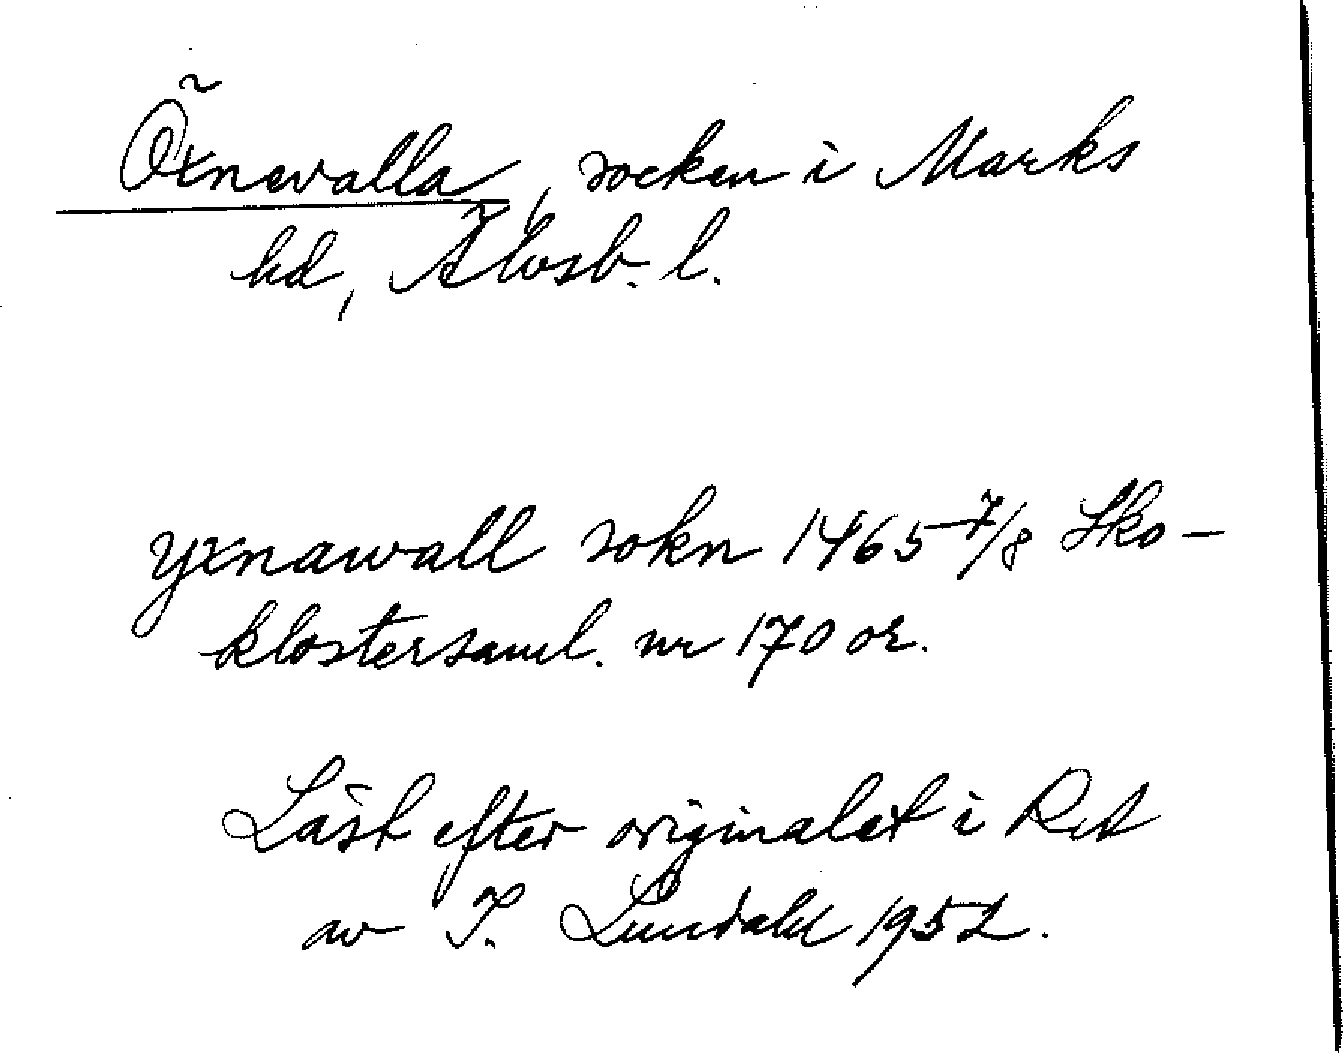 Öxnevalla, socken i Marks
hd, Älvsb. l.
yxnawall sokn 1465 7/8 Sko-
klostersaml. nr 170 or.
Läst efter originalet i RA
av I. Lundahl 1952.